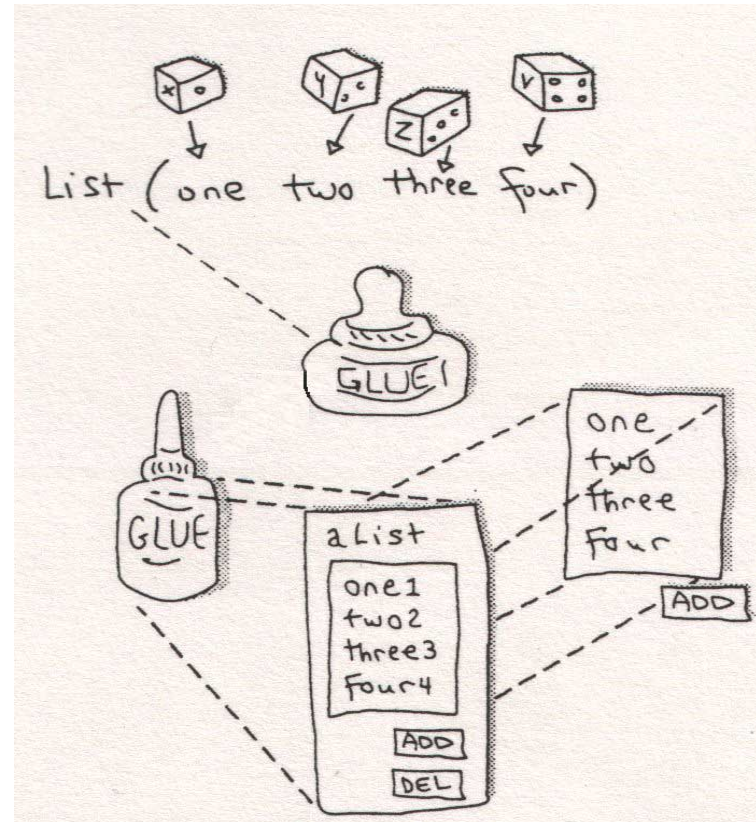 X
Y
Z
V
List (one two three four)
GLUE
GLUE
aList
one1
two2
three3
four4
ADD
DEL
one
two
three
four
ADD